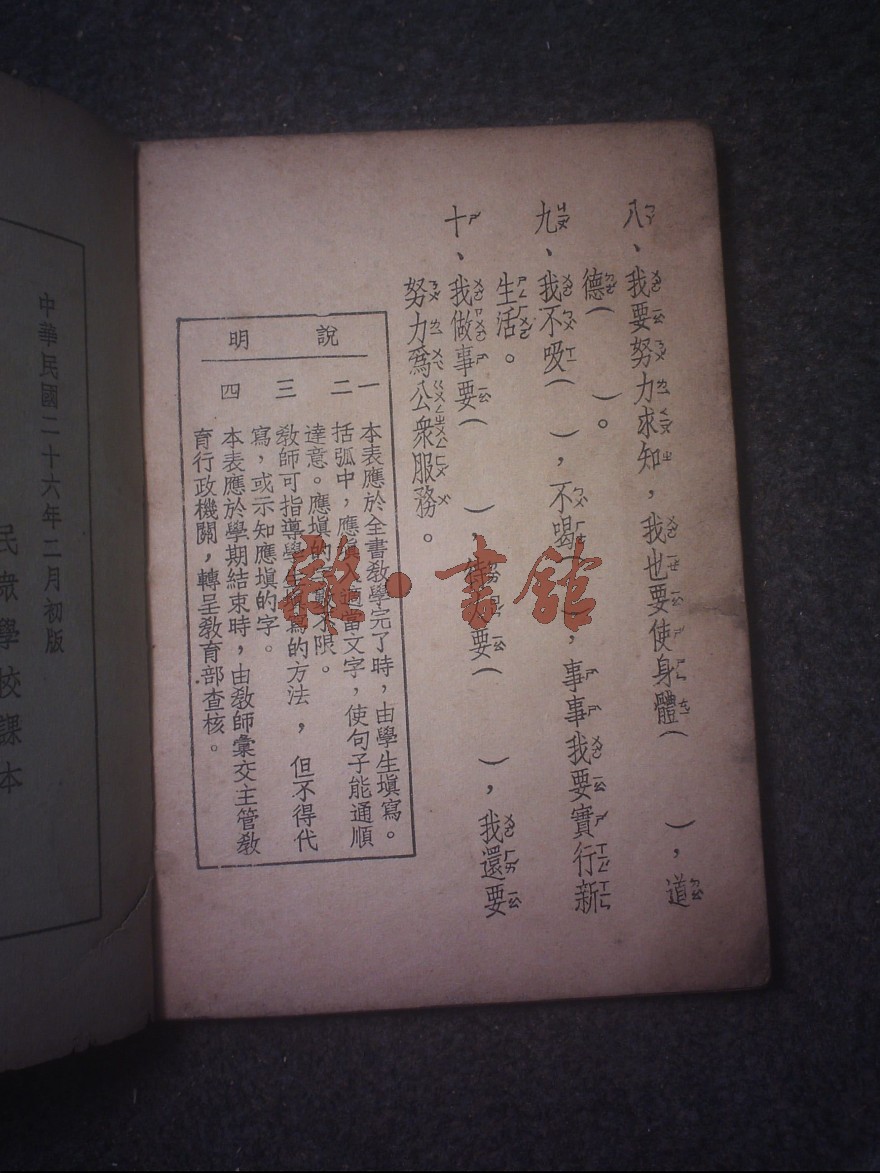 八、我要努力求知，我也要使身體（　　），道
德（　　）。
九、我不吸（　　），不喝（　　），事事我要實行新
生活。
十、我做事要（　　），待　要（　　），我還要
努力爲公衆服務。
說明
一　本表應於全書教學完了時，由學生填寫。
二　括弧中，應填　適當文字，使句子能通順
達意。應填的　數不限。
三　教師可指導學生填寫的方法，但不得代
寫，或示知應填的字。
四　本表應於學期結束時，由教師彙交主管教
育行政機關，轉呈教育部查核。
書館
中華民國二十六年二月初版
民衆學校課本